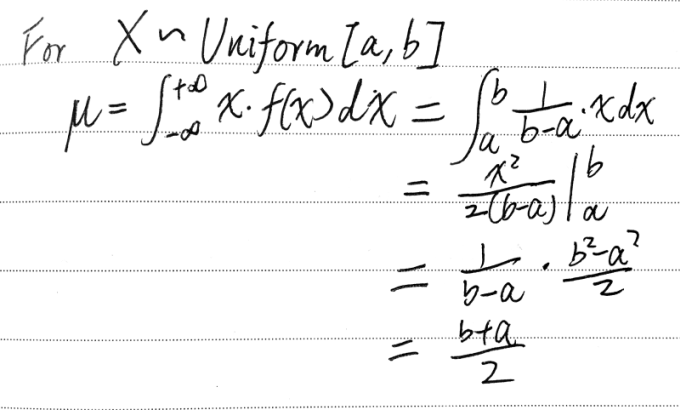 For X ~ Uniform [a, b]
μ = ∫_{-∞}^{+∞} x · f(x) dx = ∫_a^b 1/(b-a) · x dx
= x²/(2(b-a)) |_a^b
= 1/(b-a) · (b²-a²)/2
= (b+a)/2